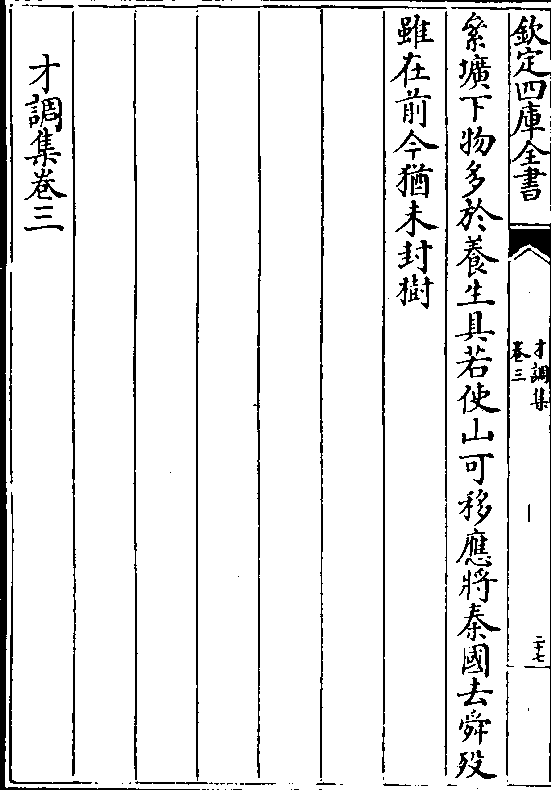 欽定四庫全書
才調集
卷三
二十七
纍壙下物多於養生具若使山可移應將秦國去舜歿
雖在前今猶未封樹
才調集卷三